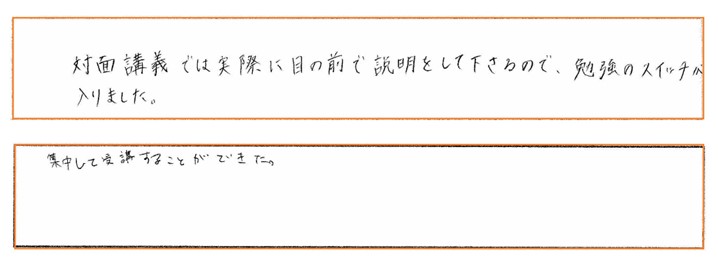 対面講義では実際に目の前で説明をして下さるので、勉強のスイッチが
入りました。
集中して受講することができた。